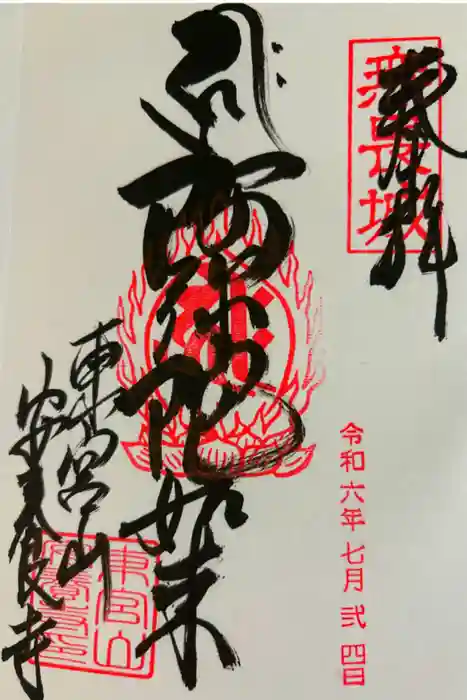 奉拝
令和六年七月弐四日
阿弥陀如来
東宮山
安養寺